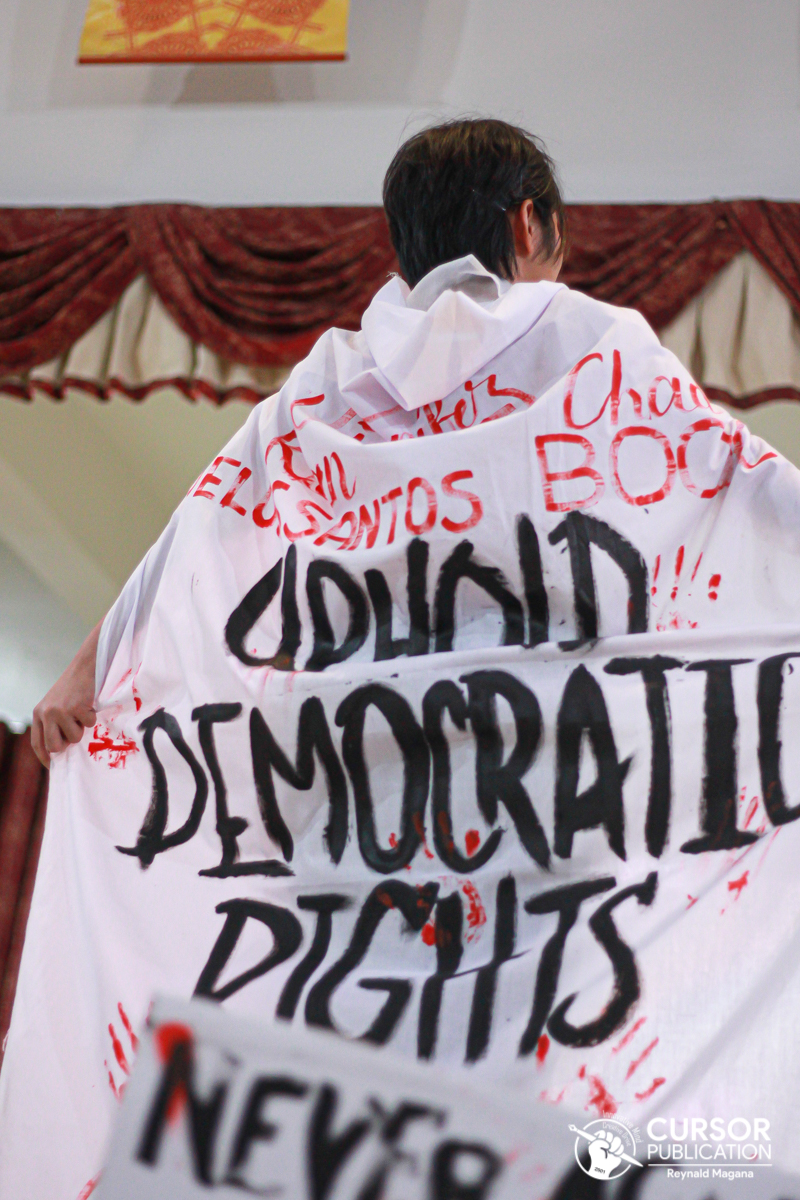 Chad
BOOC
SANTOS
UPHOLD
DEMOCRATIC
RIGHTS
NEVER
CURSOR
PUBLICATION
Reynald Magana
2001